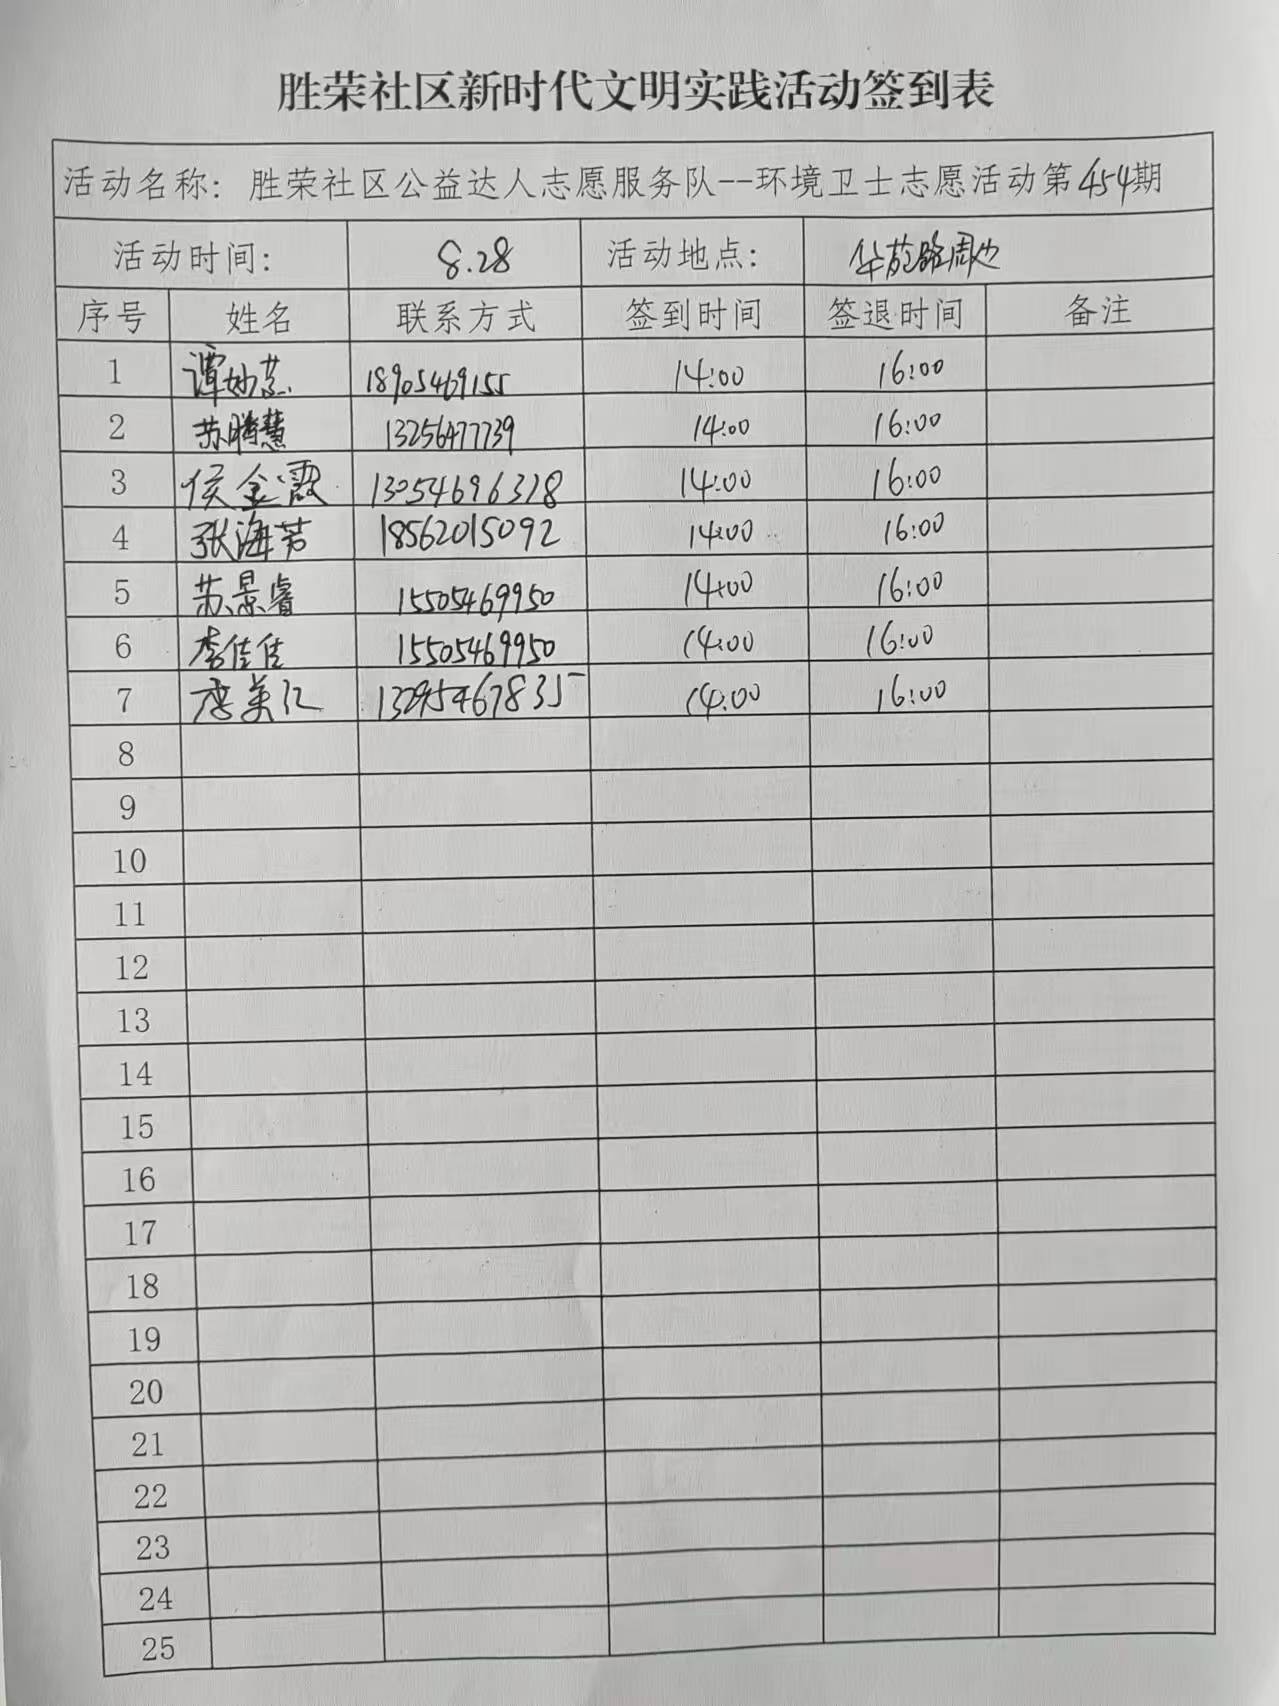 胜荣社区新时代文明实践活动签到表
活动名称: 胜荣社区公益达人志愿服务队--环境卫士志愿活动第454期
活动时间: 8.28 活动地点: 华苑路周边
序号 姓名 联系方式 签到时间 签退时间 备注
1 谭妙蕊 18905469155 14:00 16:00
2 苏腾慧 13256477739 14:00 16:00
3 侯金霞 13054696378 14:00 16:00
4 张海芳 18562015092 14:00 16:00
5 苏景睿 15505469950 14:00 16:00
6 李佳佳 15505469950 14:00 16:00
7 唐美仁 14:00 16:00
8
9
10
11
12
13
14
15
16
17
18
19
20
21
22
23
24
25